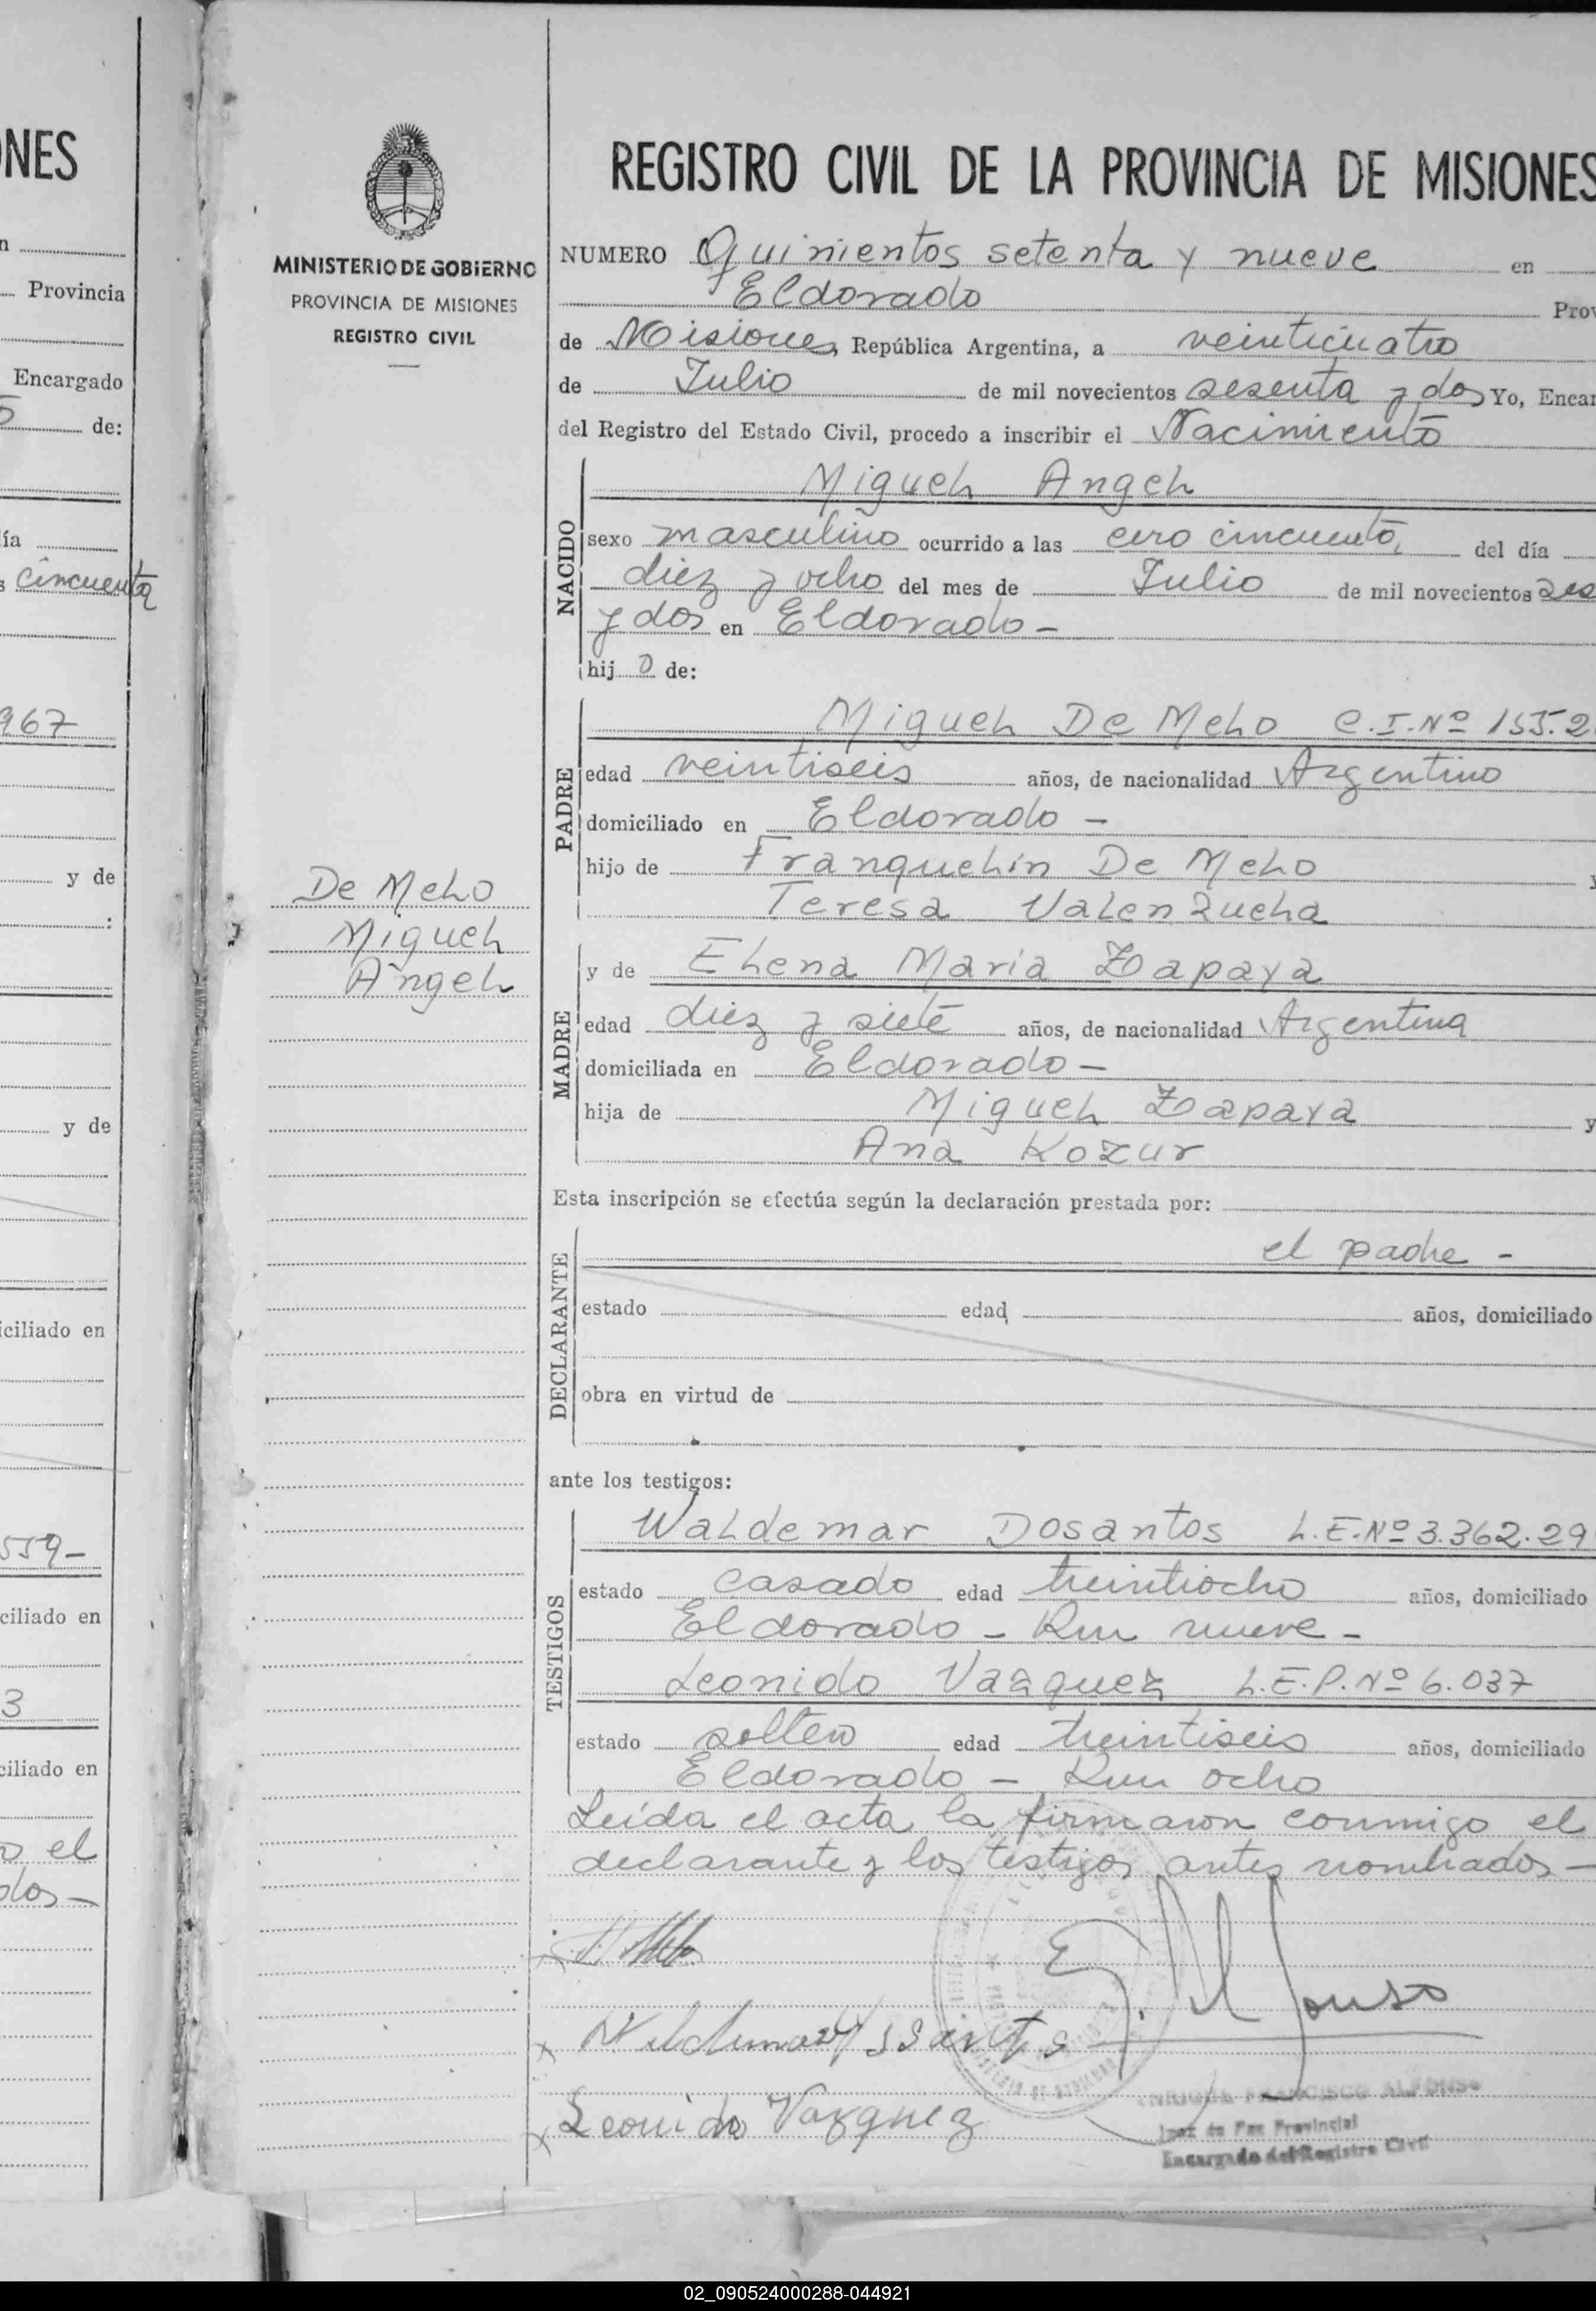 NES
n
Provincia
Encargado
5 de:
ía
s cincuenta
967
y de
:
y de
iciliado en
559-
ciliado en
3
ciliado en
o el
dos-
MINISTERIO DE GOBIERNO
PROVINCIA DE MISIONES
REGISTRO CIVIL
De Melo
Miguel
Angel
REGISTRO CIVIL DE LA PROVINCIA DE MISIONES
NUMERO Quinientos setenta y nueve en
Eldorado Prov
de Misiones, República Argentina, a veinticuatro
de Julio de mil novecientos sesenta y dos Yo, Encar
del Registro del Estado Civil, procedo a inscribir el Nacimiento
Miguel Angel
NACIDO
sexo masculino ocurrido a las cero cincuenta, del día
diez y ocho del mes de Julio de mil novecientos ses
y dos en Eldorado -
hij o de:
Miguel De Melo C.I.Nº 155.2
PADRE
edad veintiseis años, de nacionalidad Argentino
domiciliado en Eldorado -
hijo de Franquelin De Melo y
Teresa Valenzuela
MADRE
y de Elena Maria Zapaya
edad diez y siete años, de nacionalidad Argentina
domiciliada en Eldorado -
hija de Miguel Zapaya y
Ana Kozur
Esta inscripción se efectúa según la declaración prestada por:
el padre -
DECLARANTE
estado edad años, domiciliado
obra en virtud de
ante los testigos:
Waldemar Dosantos L.E.Nº 3.362.29
TESTIGOS
estado casado edad treintiocho años, domiciliado
Eldorado - Km nueve -
Leonido Vazquez L.E.P.Nº 6.037
estado soltero edad treintiseis años, domiciliado
Eldorado - Km ocho
Leída el acta la firmaron conmigo el
declarante y los testigos antes nombrados -
Leonido Vazquez
ENRIQUE FRANCISCO ALFONSO
Juez de Paz Provincial
Encargado del Registro Civil
02_090524000288-044921